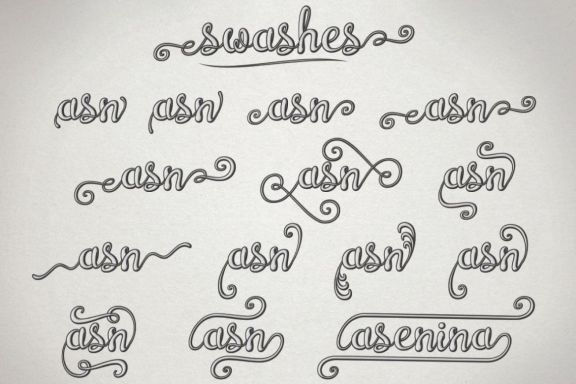 swashes
asn asn asn asn
asn asn asn
asn asn asn asn
asn asn asenina